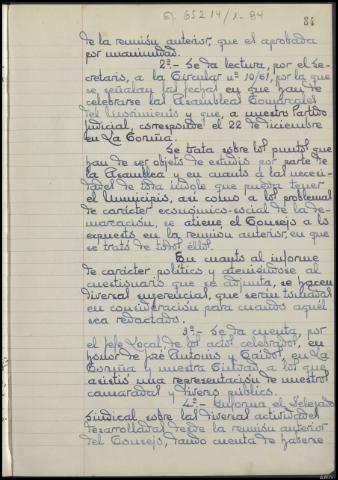 G. 6S214/1-84
84
de la reunión anterior, que el aprobada
por unanimidad.
2º.- Se da lectura, por el Se-
cretario, a la Circular nº 10/61, por la que
se señalan las fechas en que han de
celebrarse las Asambleas Comarcales
del Movimiento y que, a nuestro Partido
judicial, corresponde el 22 de diciembre
en La Coruña.
Se trata sobre los puntos que
han de ser objeto de estudio por parte de
la Asamblea y en cuanto a las necesi-
dades de toda índole que pueda tener
el Municipio, así como a los problemas
de carácter económico-social de la de-
marcación, se atiene el Consejo a lo
expuesto en la reunión anterior, en que
se trató de todos ellos.
En cuanto al informe
de carácter político y ateniéndose al
cuestionario que se adjunta, se hacen
diversas sugerencias, que serán tomadas
en consideración para cuando aquél
sea redactado.
3º.- Se da cuenta, por
el Jefe Local de los actos celebrados, en
honor de José Antonio y Caídos, en La
Coruña y nuestra Ciudad a los que
asistió una representación de nuestros
camaradas y diverso público.
4º.- Informa el Delegado
Sindical sobre las diversas actividades
desarrolladas desde la reunión anterior
del Consejo, dando cuenta de haberse